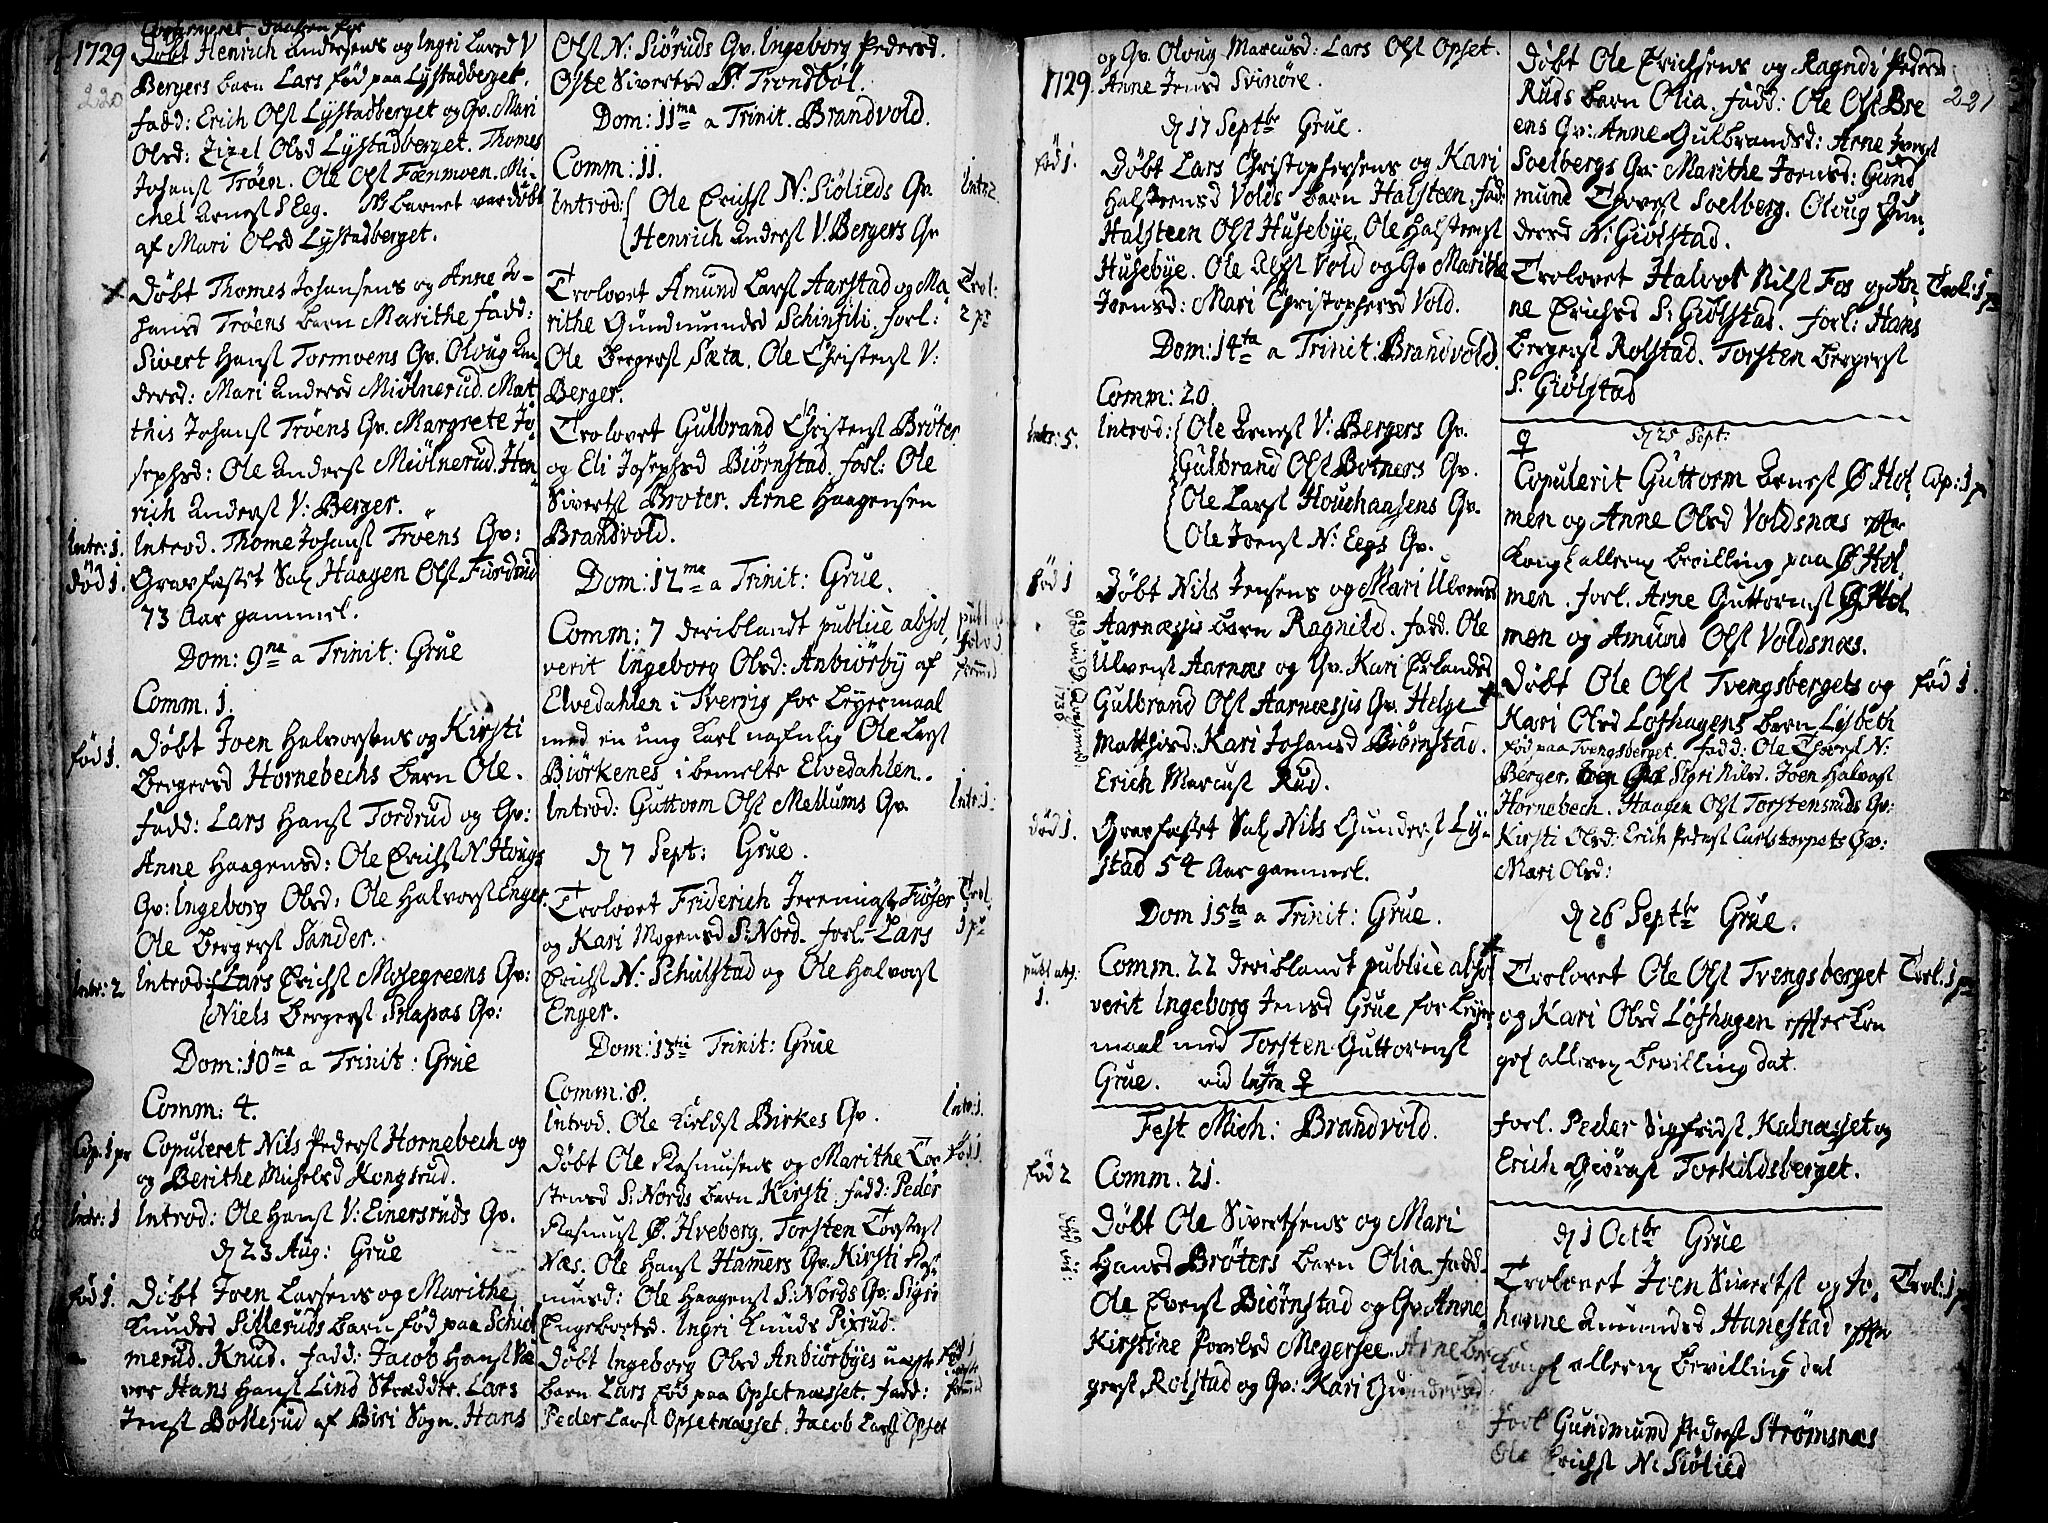 1729
220
Confirmeret Daaben for
Døbt Henrich Andersens og Ingri Larsd V
Bergers barn Lars fød paa Lystadberget.
fadd: Erich Olsꝭ Lystadberget og Qv. Mari
Olsd: Zizel Olsd Lystadberget. Thomes
Johansꝭ Trøen. Ole Olsꝭ Fænmoen. Mi-
chel Arnesꝭ S Eeg. NB barnet var døbt
af Mari Olsd Lystadberget.
Døbt Thomes Johansens og Anne Jo-
hansd Trøens barn Marithe fadd:
Sivert Hansꝭ Tormoens Qv. Oloug An-
dersd: Mari Andersd Miølnerud. Mat
this Johansꝭ Trøens Qv. Margrete Jo
sephsd: Ole Andersꝭ Miølnerud. Hen
rich Andersꝭ V: Berger.
Intr: 1. Introd. Thome Johansꝭ Trøens Qv:
død 1. Gravfæstet Sal Haagen Olsꝭ Furdrud
73 Aar gammel.
Dom: 9na a Trinit: Grue
Comm. 1.
fød 1. Døbt Joen Halvorsens og Kirsti
Bergersd Hornebechs barn Ole.
fadd: Lars Hansꝭ Tordrud og Qv:
Anne Haagensd: Ole Erichsꝭ N Hougs
Qv: Ingeborg Olsd: Ole Halvorsꝭ Enger.
Ole Bergersꝭ Sander.
Intr: 2 Introd: Lars Erichsꝭ Mosegreens Qv:
Niels Bergersꝭ Slapas Qv:
Dom: 10ma a Trinit: Grue
Comm: 4.
Cop: 1 pr Copuleret Nils Pedersꝭ Hornebech og
og Berithe Michelsd Kongsrud.
Intr: 1 Introd: Ole Hansꝭ V: Einersruds Qv.
d 23 Aug: Grue
fød 1. Døbt Joen Larsens og Marithe
Knudsd Silleruds barn fød paa Schul
merud. Knud. fadd: Jacob Hansꝭ Væ
ver Hans Hansꝭ Lind Skrædder. Lars
Jensꝭ Bollerud af Biri Sogn. Hans
Olsꝭ N: Siøruds Qv. Ingeborg Pedersd.
Oste Sivertsd S. Trondbøl.
Dom: 11ma a Trinit. Brandvold.
Comm: 11.
Introd: Ole Erichsꝭ N: Siølieds Qv. Intr: 2
Henrich Andersꝭ V. Bergers Qv
Trolovet Amund Larsꝭ Aarstad og Ma Trol:
rithe Gundmundsd Schinfili. forl: 2 pr
Ole Bergersꝭ Sæta. Ole Christensꝭ V:
Berger.
Trolovet Gulbrand Christensꝭ Brøter
og Eli Josephsd Biørnstad. forl: Ole
Sivertsꝭ Brøter. Arne Haagensen
Brandvold.
Dom: 12ma a Trinit: Grue.
Comm: 7 deriblandt publicè absol
verit Ingeborg Olsd: Anbiørby af
Elvedahlen i Sverrig for Leyermaal
med en ung Karl nafnlig Ole Larsꝭ
Biørkenes i bemelte Elvedahlen.
Introd: Guttorm Olsꝭ Mellums Qv. Intr: 1.
d 7 Sept: Grue.
Trolovet Friderich Jeremiasꝭ Fisser Trol.
og Kari Mogensd S: Nord. forl: Lars 1 pr
Erichsꝭ N: Schulstad og Ole Halvorsꝭ
Enger.
Dom: 13tii Trinit: Grue
Comm: 8.
Introd. Ole Eieldsꝭ Birkes Qv. Intr: 1.
Døbt Ole Rasmusens og Marithe Tor fød 1.
stensd S: Nords barn Kirsti. fadd: Peder
Rasmusꝭ Ø. Hveberg. Torsten Torstensꝭ
Næs. Ole Hansꝭ Hammers Qv. Kirsti Ras
musd: Ole Haagensꝭ S: Nords Qv: Sigri
Engebortsd. Ingri Knuds Pixrud.
Døbt Ingeborg Olsd Anbiørbyes uægte fød 1
barn Lars fød paa Opsetnæsset. fadd:
Peder Larsꝭ Opsetnæsset. Jacob Larsꝭ Opset
1729
og Qv. Oloug Marcusd: Lars Olsꝭ Opset.
Anne Jensd Svinøre.
d 17 Septbr Grue.
fød 1. Døbt Lars Christophersens og Kari
Halsteensd Volds barn Halsteen. fad:
Halsteen Olsꝭ Husebye, Ole Halsteensꝭ
Husebye. Ole Alfsꝭ Vold og Qv. Marithe
Joensd: Mari Christophersd Vold.
Dom: 14ta a Trinit: Brandvold.
Comm: 20.
Intr: 5. Introd: Ole Arnesꝭ V: Bergers Qv.
Gulbrand Olsꝭ Botners Qv.
Ole Larsꝭ Houchaasens Qv.
Ole Joensꝭ N: Eegs Qv.
fød 1 Døbt Nils Jensens og Mari Ulvensd
Aarnæssies barn Ragnild. fadd. Ole
Ulvensꝭ Aarnæs og Qv. Kari Erlandsd
Gulbrand Olsꝭ Aarnæssjus Qv. Helge
Matthisd: Kari Johansd Biørnstad.
Erich Marcusꝭ Rud.
død 1. Gravfæstet Sal Nils Gundersꝭ Ly-
stad 54 Aar gammel.
Dom 15ta a Trinit: Grue.
publ abs: 1. Comm. 22 deriblandt publicè absol
verit Ingeborg Jensd Grue for Leyer
maal med Torsten Guttormsꝭ
Grue. vid infra ♀
Fest Mich: Brandvold.
fød 2 Comm. 21.
Døbt Ole Sivertsens og Mari
Hansd Brøters barn Olia. fadd.
Ole Evensꝭ Biørnstad og Qv. Anne
Kirstine Povelsd Megersee. Arne Ber
gersꝭ Rolstad og Qv: Kari Gundersd.
221
Døbt Ole Erichsens og Ragndi Pedersd
Ruds barn Olia. fadd: Ole Olsꝭ Bre
ens Qv: Anne Gulbrandsd: Arne Joensꝭ
Soelbergs Qv. Marithe Joensd: Gund
mund Thoresꝭ Soelberg. Oloug Gun-
dersd N: Giølstad.
Trolovet Halvor Nilsꝭ Fos og An Trol: 1 pr
ne Erichsd S: Giølstad. forl: Hans
Bergersꝭ Rolstad. Torsten Bergersꝭ
S. Giølstad
♀ d 25 Sept:
Copulerit Guttorm Arnesꝭ Ø Hol Cop: 1 p
men og Anne Olsd Voldsnæs efter
Kongl allern bevilling paa Ø Hol
men. forl. Arne Guttormsꝭ Ø Hol
men og Amund Olsꝭ Voldsnæs.
Døbt Ole Olsꝭ Tvengsbergets og fød 1.
Kari Olsd Lofhagens barn Lisbech
fød paa Tvengsberget. fadd: Ole Thoresꝭ N:
Berger. Sigri Nilsd. Joen Halvorsꝭ
Hornebech. Haagen Olsꝭ Torstensruds Qv:
Kirsti Olsd: Erich Pedersꝭ Carlstorpets Qv:
Mari Olsd:
d 26 Septbr Grue.
Trolovet Ole Olsꝭ Tvengsberget Trol: 1 pr
og Kari Olsd Lofhagen efter Kon
gel allern bevilling dat.
forl. Peder Sigfridsꝭ Kalnæsset og
Erich Giøransꝭ Torkildsberget.
d 1 Octbr Grue
Trolovet Joen Sivertsꝭ og Jo Trol: 1 p
hanne Amundsd Hanestad efter
Kongl allern bevilling dat
forl Gundmund Pedersꝭ Strømsnæs
Ole Erichsꝭ N: Siølied